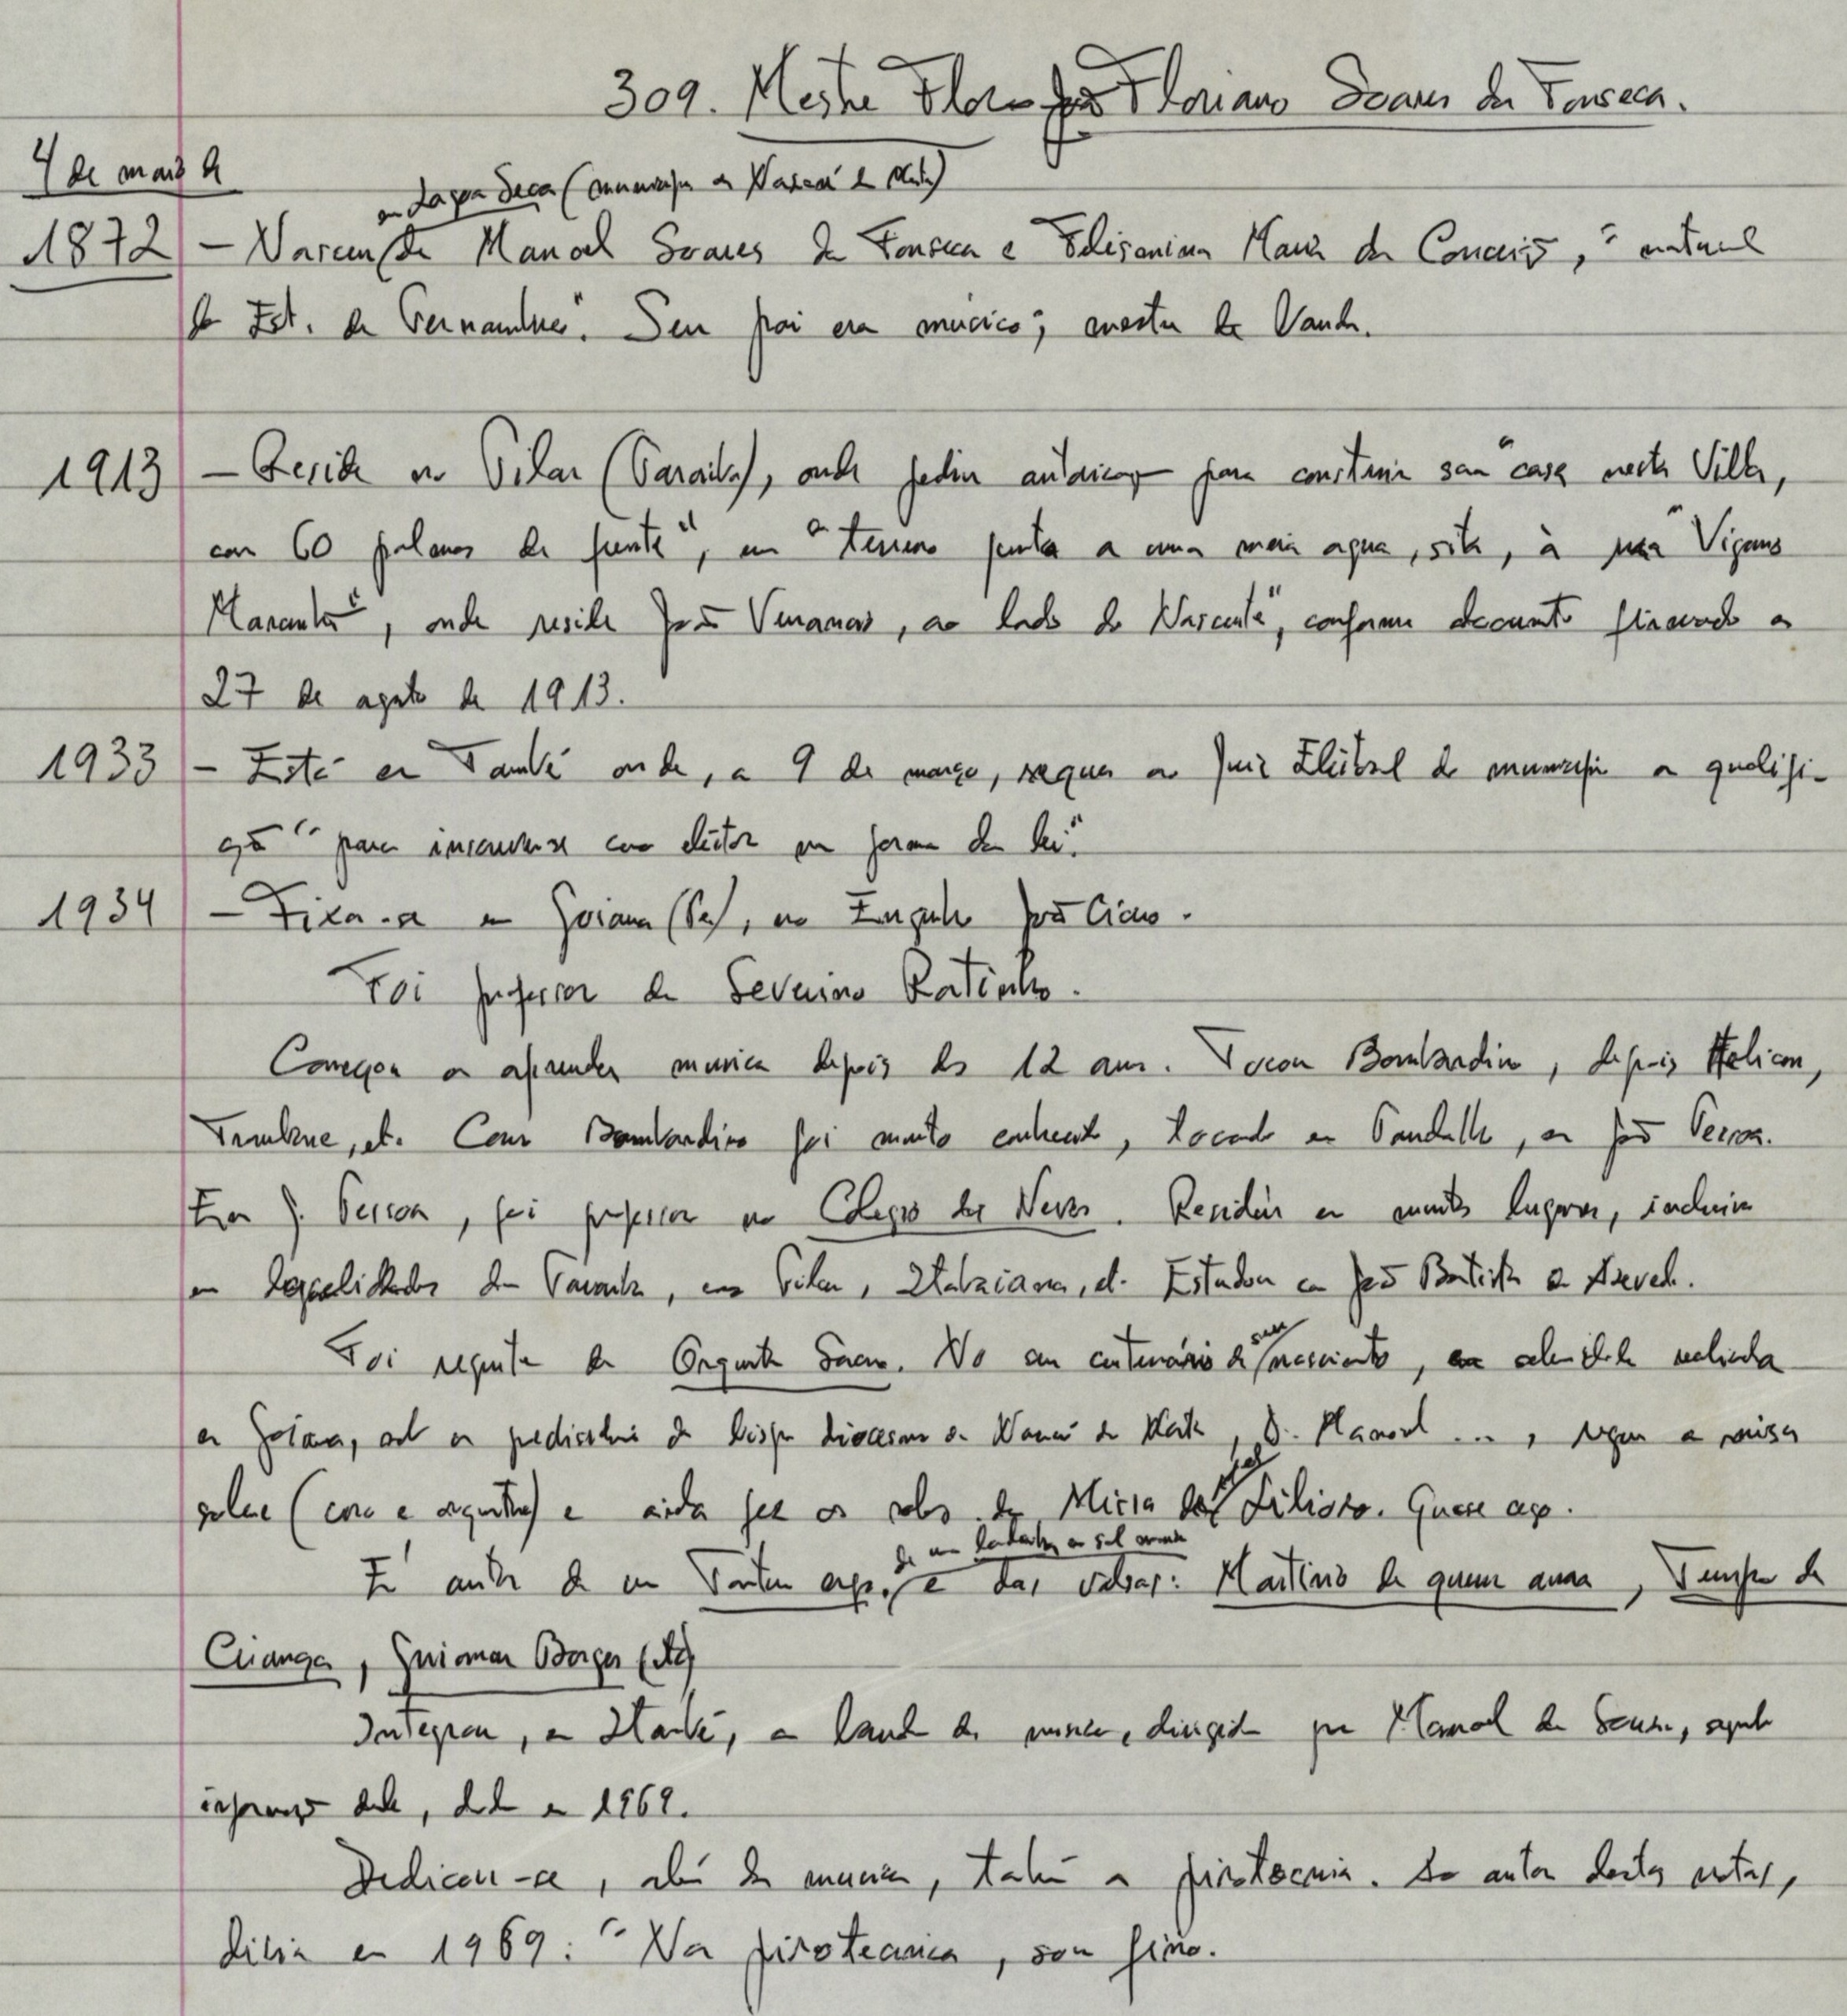 309. Mestre Flor João Floriano Soares da Fonseca.
4 de maio de
em Lagoa Seca (município de Nazaré da Mata)
1872 - Nasceu, de Manoel Soares da Fonseca e Maria da Conceição, "natural
do Est. de Pernambuco". Seu pai era músico; mestre de Banda.
1913 - Reside em Pilar (Paraíba), onde pediu autorização para construir "casa nesta Villa,
com 60 palmos de frente", em "terreno junto a uma meia agua, sita, à rua "Vigario
", onde reside João Venancio, ao lado do Nascente", conforme documento firmado a
27 de agosto de 1913.
1933 - Está em Itambé onde, a 9 de março, requer ao Juiz Eleitoral do município a qualifi-
cação "para inscrever-se como eleitor na forma da lei".
1934 - Fixa-se em Goiana (Pe), no Engenho João
Foi professor de Severino Ratinho.
Começou a aprender música depois dos 12 anos. Tocou Bombardino, depois Helicon,
Trombone, etc. Com Bombardino foi muito conhecido, tocando em , em João Pessoa.
Em J. Pessoa, foi professor no Colegio das Neves. Residiu em muitos lugares, inclusive
em localidades da Paraíba, como Pilar, Itabaiana, etc. Estudou com João Batista de Azevedo.
Foi regente da Orquestra Sacra. No ano centenário de seu nascimento, em solenidade realizada
em Goiana, sob a do bispo diocesano de Nazaré da Mata, D. Manoel ..., regeu a missa
solene (coro e orquestra) e ainda fez os solos da Missa de . Quase cego.
de uma ladainha em sol
É autor de um Tantum ergo, e das valsas: Martirio de quem ama, Tempo de
Criança, Guiomar Borges (etc)
Integrou, em Itambé, a banda de musica, dirigida por Manoel de Souza, segundo
informação dele, dada em 1969.
Dedicou-se, além da musica, também a pirotecnia. Ao autor destas notas,
dizia em 1969: "Na pirotecnica, sou fino.